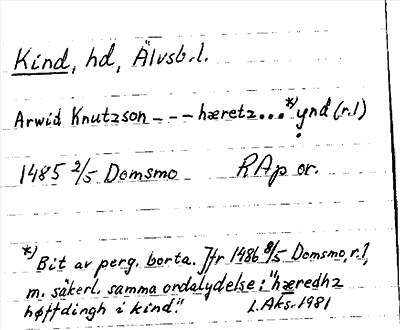 Kind, hd, Älvsb.l.
Arwid Knutzson --- hæretz...*) ynd (r.1)
1485 2/5 Domsmo RAp or.
*) Bit av perg. borta. Jfr 1486 8/5 Domsmo, r.1,
m. säkerl. samma ordalydelse: "hæredhz
høffdingh i kind".
L.Aks. 1981